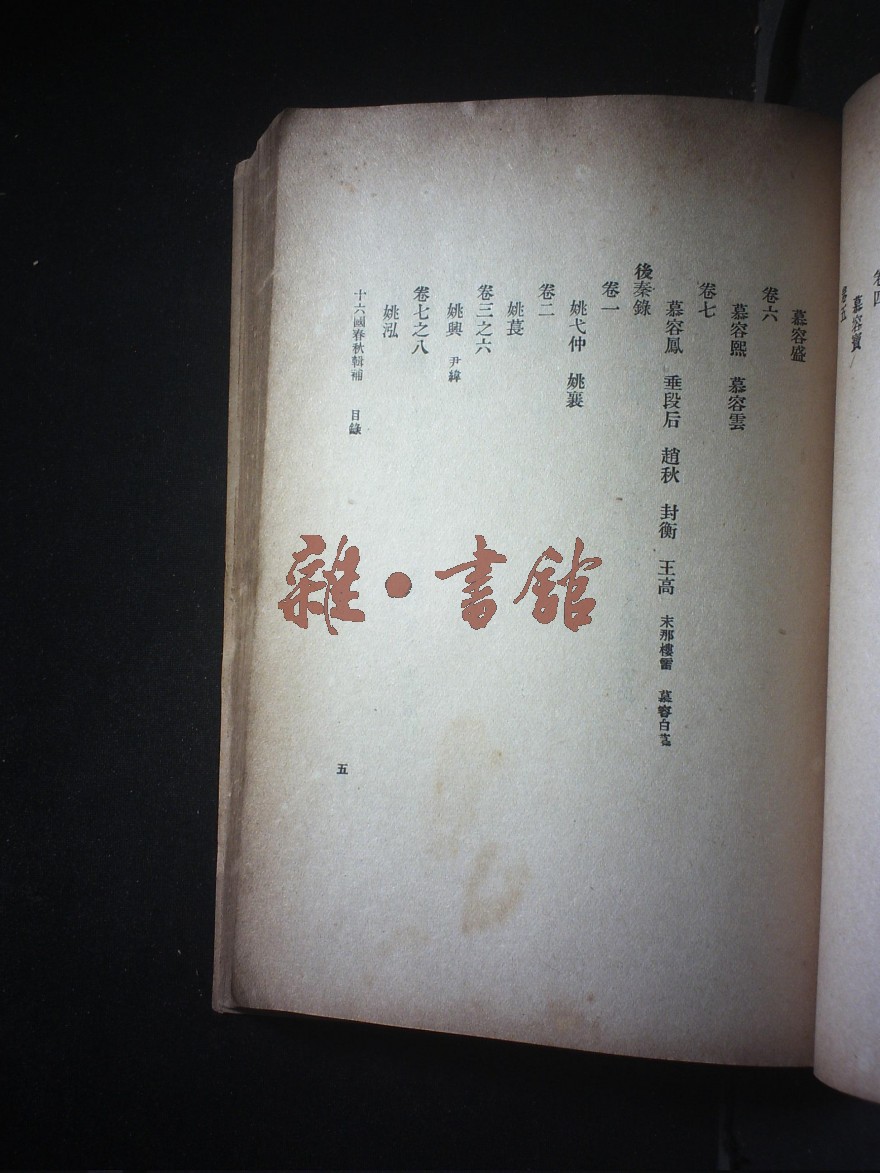 卷四
慕容寶
卷五
慕容盛
卷六
慕容熙　慕容雲
卷七
慕容鳳　垂段后　趙秋　封衡　王高　末那樓雷　慕容白
後秦錄
卷一
姚弋仲　姚襄
卷二
姚萇
卷三之六
姚興　尹緯
卷七之八
姚泓
十六國春秋輯補　目錄
五
雜・書館